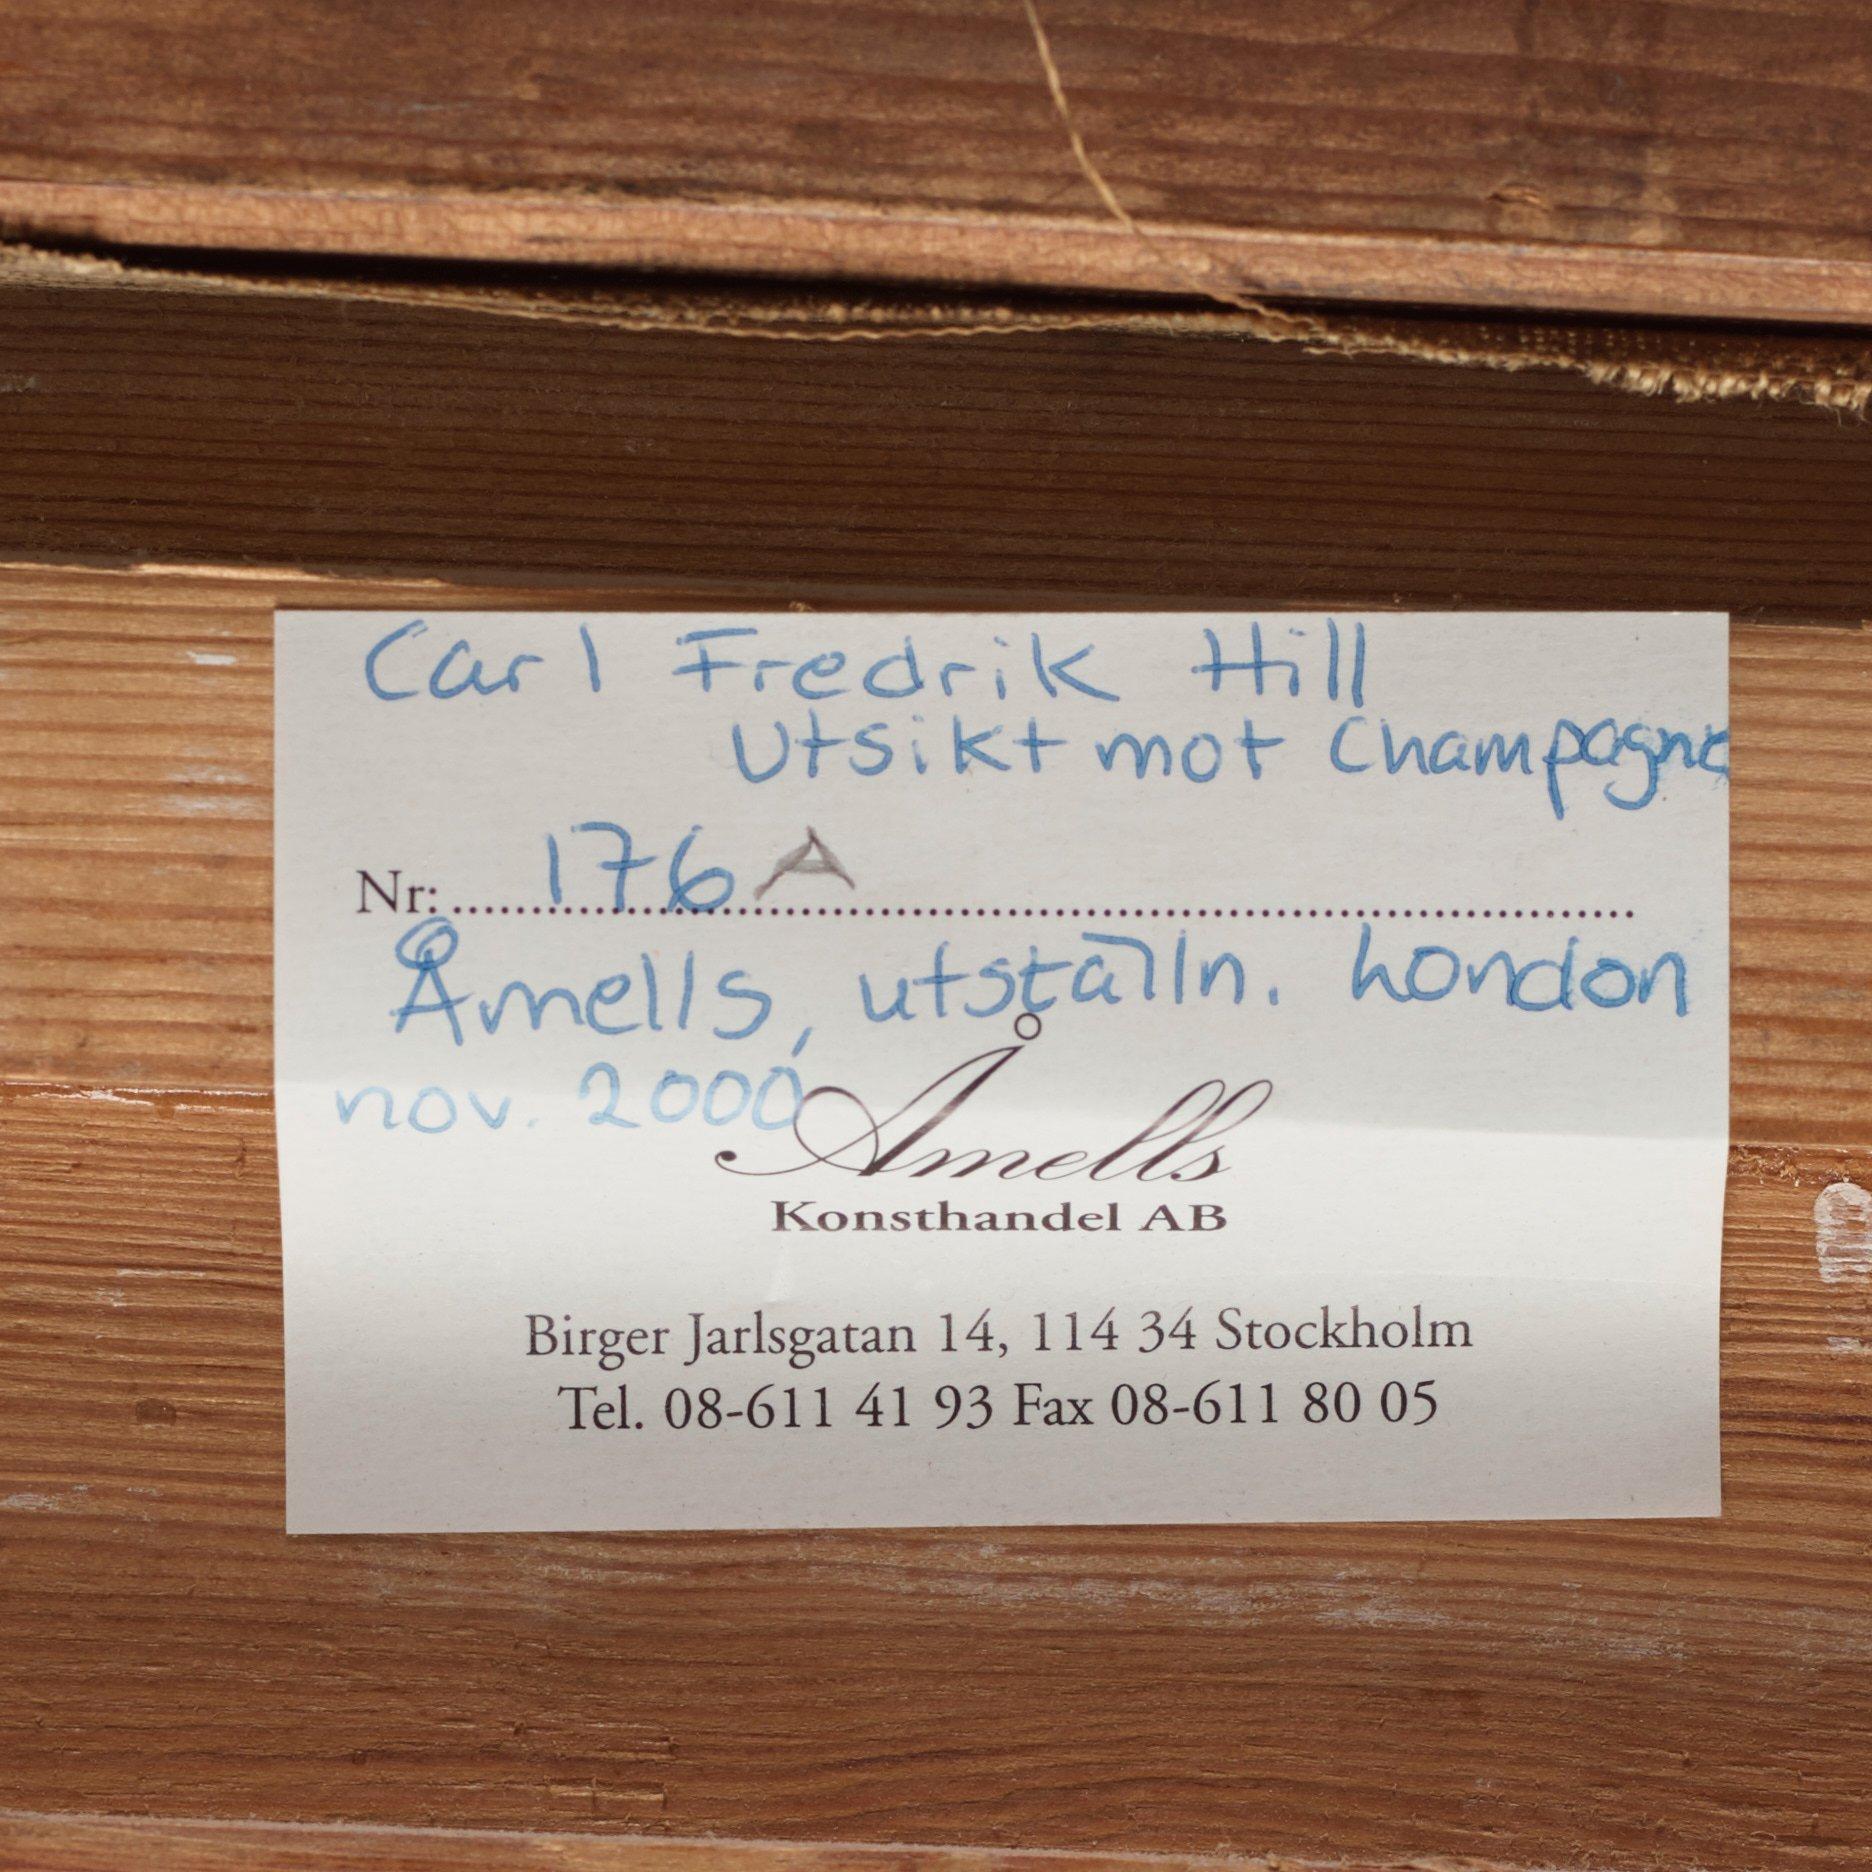 Carl Fredrik Hill
Utsikt mot Champagne
Nr: 176 A
Åmells, utställn. London
nov. 2000
Åmells
Konsthandel AB
Birger Jarlsgatan 14, 114 34 Stockholm
Tel. 08-611 41 93 Fax 08-611 80 05